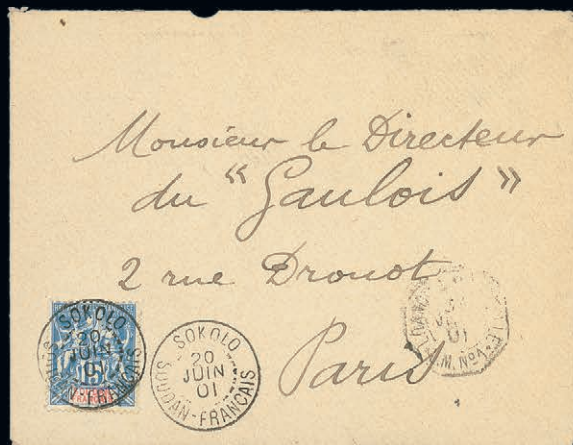 Monsieur le Directeur
du "Gaulois"
2 rue Drouot
Paris
SOKOLO
20
JUIN
01
SOUDAN-FRANCAIS
15
SOKOLO
20
JUIN
01
SOUDAN-FRANCAIS
01